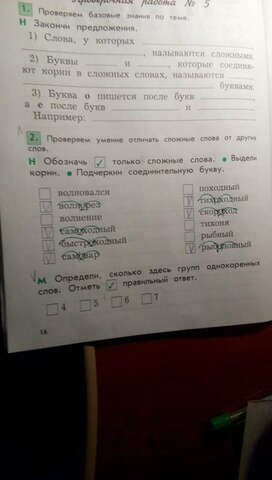 Проверочная работа № 5
1. Проверяем базовые знания по теме.
Н Закончи предложения.
1) Слова, у которых
, называются сложными.
2) Буквы и , которые соединя-
ют корни в сложных словах, называются
буквами.
3) Буква о пишется после букв ,
а е после букв и .
Например:
2. Проверяем умение отличать сложные слова от других
слов.
Н Обозначь ✓ только сложные слова. • Выдели
корни. • Подчеркни соединительную букву.
волновался
волнорез
волнение
самоходный
быстроходный
самовар
походный
тихоходный
скороход
тихоня
рыбный
рыболовный
М Определи, сколько здесь групп однокоренных
слов. Отметь ✓ правильный ответ.
4 5 6 7